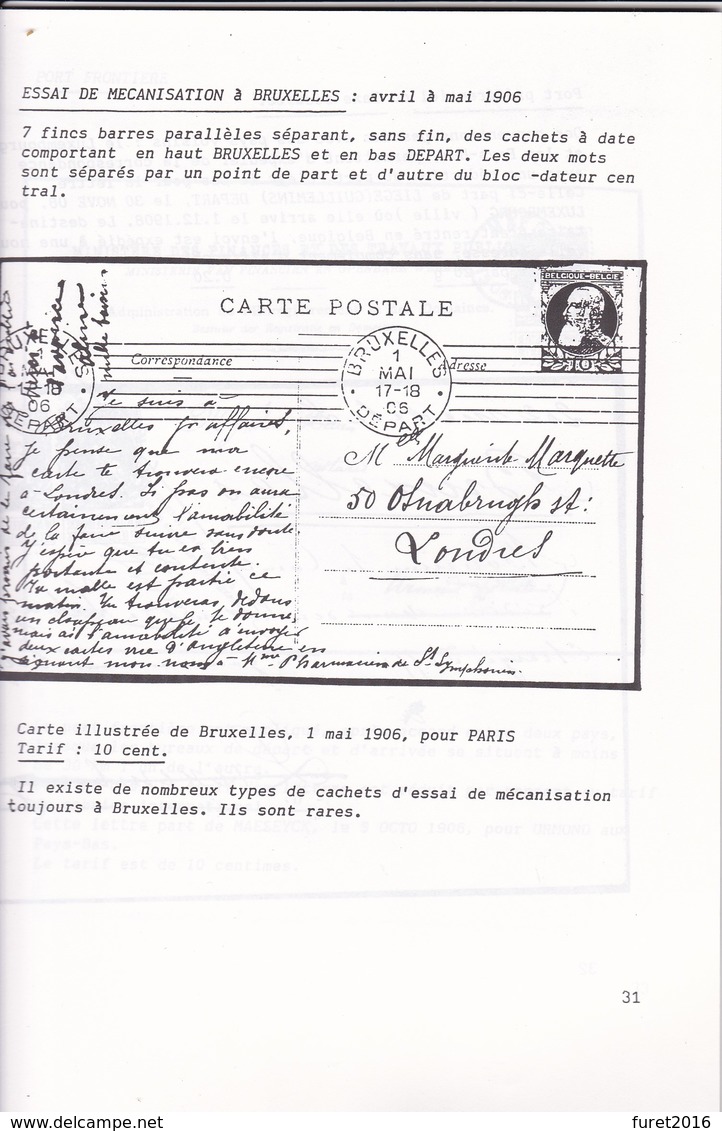 ESSAI DE MECANISATION à BRUXELLES : avril à mai 1906
7 fincs barres parallèles séparant, sans fin, des cachets à date
comportant en haut BRUXELLES et en bas DEPART. Les deux mots
sont séparés par un point de part et d'autre du bloc -dateur cen
tral.
CARTE POSTALE
BELGIQUE-BELGIE
10
Correspondance
dresse
BRUXELLES
1
MAI
17-18
06
DEPART
18
06
DEPART
Je suis à
Bruxelles pr affaires,
Je pense que ma
carte te trouvera encore
à Londres. Si pas on aura
certainement l'amabilité
de la faire suivre sans doute.
J'espère que tu es bien
portante et contente.
Ta malle est partie ce
matin. Tu trouveras dedans
un chapeau que je te donne
mais ais l'amabilité d'envoyer
deux cartes vue d'Angleterre en
signant mon nom à Mme Pharmacien de St Symphorien.
Melle Marguerite Marquette
50 Osnabrugh st:
Londres
Carte illustrée de Bruxelles, 1 mai 1906, pour PARIS
Tarif : 10 cent.
Il existe de nombreux types de cachets d'essai de mécanisation
toujours à Bruxelles. Ils sont rares.
31
furet2016